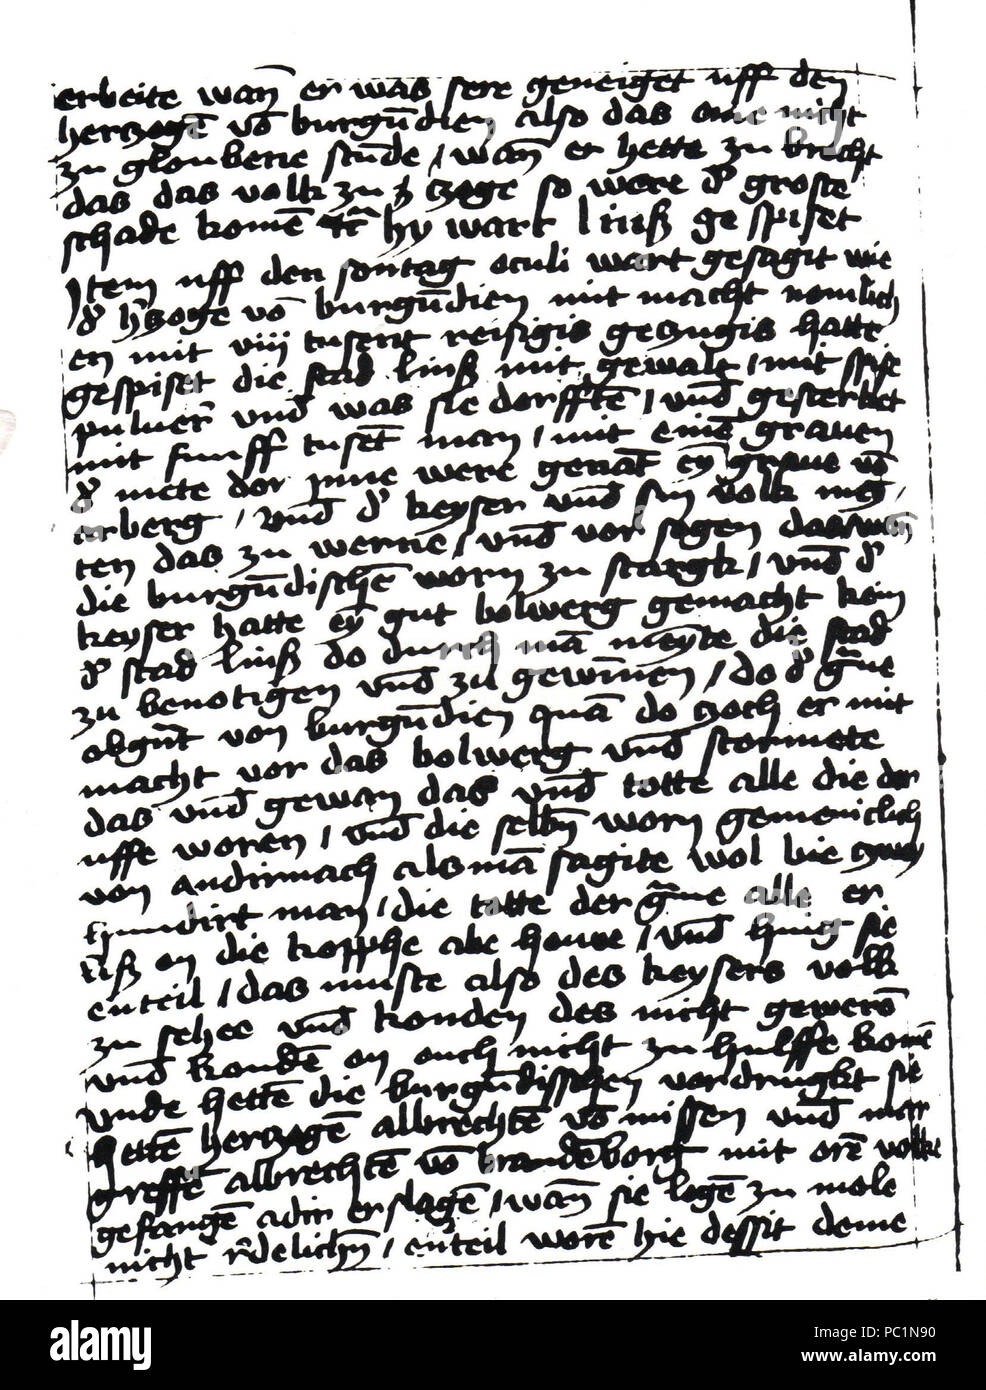 erbeite wañ er was sere geneiget uff den
hertzogē vō burgūdien also das ome nicht
zu gloubene stūde / wañ er hette zu bracht
das das volk zu tzoge so were d' groste
schade komē hy wart linß ge spiset
Item uff den sontag oculi wart gesagit wie
d' h'tzoge vō burgūdien mit macht nemlich
en mit viij tusent reisigis getzugis hatte
gespiset die stad linß mit gewalt / mit spise
pulver und was sie dorfftē / und gesterket
mit funff tusēt man / mit eimē graven
d' mete dor inne were genāt eȳ grave vō
erberg / und d' keyser und sin volk
ten das zu werne / und vor sogen das wañ
die burgūdischē worn zu stargk / und d'
keyser hatte eȳ gut bolwerg gemacht kein
d' stad linß do durch mā meynte die stad
zu benotigen und zu gewīnen / do d'
obgñt von burgūdien quā do tzoch er mit
macht vor das bolwerg und stormete
das und gewan das und totte alle die dor
uffe woren / und die selbñ worn gemeinclich
von andirnach alsmā sagite wol bie tzwey
hundirt man / die totte der alle er
ließ on die kopphe abe houwe / und hing sie
enteil / das muste also des keysers volk
zu sehee und konden des nicht gewerē
und kondē on ouch nicht zu hulffe komē
unde hettē die burgūdisschen vordrungkt sie
hettē hertzogē albrechtē vō missen und mar
greffē albrechtē vō brandēborg mit orē volke
gefangē adir erslagē / wañ sie logē zu mole
nicht redelichñ / enteil worē hie dessit deme
alamy
alamy
Image ID: PC1N90
www.alamy.com